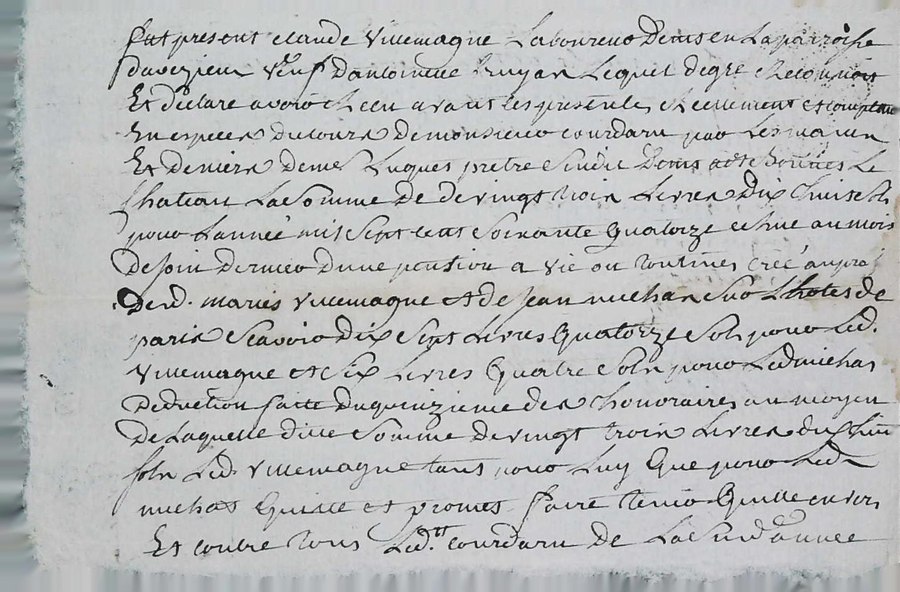 fut present claude Villemagne Laboureur Demt en La parroisse
d'avezieu Veuf d'antoinette Lequel de gré Reconnoit
Et déclare avoir Receu avant les presentes Reellement et comptant
En especes Du cours De monsieur courdaru par Les mains
Et Deniers de me Lugues pretre Sindic Demt Le
Chateau La Somme De de vingt trois Livres Dix huit Sols
pour L'année mil Sept cent Soixante Quatorze echue au mois
De Join Dernier D'une pention a vie ou Tontines créé au pro
De d. maries Villemagne et de Jean michas Sur L'hotel de
paris Scavoir Dix Sept Livres Quatorze Sols pour Led.
Villemagne et Six Livres Quatre Sols pour Led michas
Deduction faitte Du quinzieme des honoraires au moyen
De Laquelle ditte Somme De vingt trois Livres dix huit
Sols Led. Villemagne tant pour Luy Que pour Led.
michas Quitte et promet faire tenir Quitte envers
Et contre Tous Led. courdaru De La Susd année